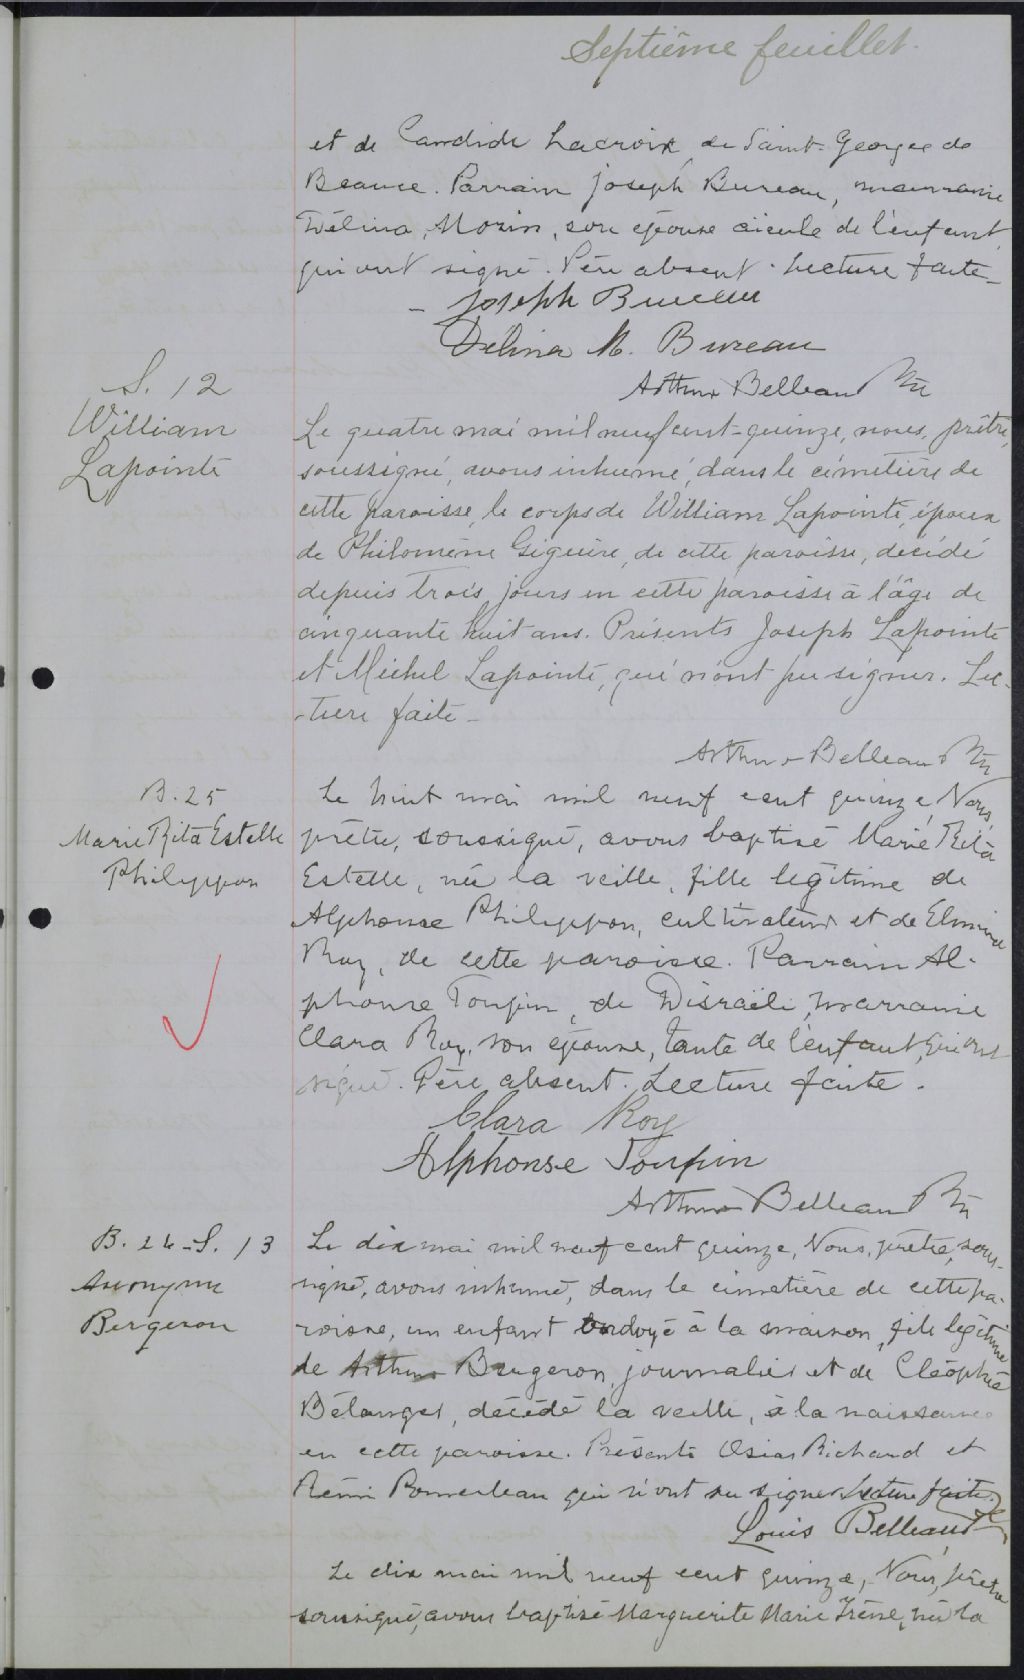 Septième feuillet.
et de Candide Lacroix, de Saint-Georges de
Beauce. Parrain Joseph Bureau, marraine
Délina, Morin, son épouse aieule de l'enfant,
qui ont signé. Père absent. Lecture faite_
_ Joseph Bureau
Delina M. Bureau
Arthur Belleau Ptre
S. 12
William
Lapointe
Le quatre mai mil neuf cent-quinze, nous, prêtre,
soussigné, avons inhumé, dans le cimetière de
cette paroisse, le corps de William Lapointe, époux
de Philomène Giguère, de cette paroisse, décédé
depuis trois jours en cette paroisse à l'âge de
cinquante huit ans. Présents Joseph Lapointe
et Michel Lapointe, qui n'ont pu signer. Lec-
-ture faite_
Arthur Belleau Ptre
B. 25
Marie Rita Estelle
Philippon
Le huit mai mil neuf cent quinze, Nous,
prêtre, soussigné, avons baptisé Marie Rita
Estelle, née la veille, fille légitime de
Alphonse Philippon, cultivateur et de Elmire
Roy, de cette paroisse. Parrain Al-
phonse Toupin, de Disraëli, marraine
Clara Roy, son épouse, tante de l'enfant, qui ont
signé. Père absent. Lecture faite.
Clara Roy
Alphonse Toupin
Arthur Belleau Ptre
B. 26-S. 13
Anonyme
Bergeron
Le dix mai mil neuf cent quinze, Nous, prêtre, sous-
signé, avons inhumé, dans le cimetière de cette pa-
roisse, un enfant ondoyé à la maison, fils légitime
de Arthur Bergeron, journalier et de Cléophée
Bélanger, décédé la veille, à la naissance
en cette paroisse. Présents Osias Richard et
Rémi Pomerleau qui n'ont su signer. Lecture faite.
Louis Belleau
Le dix mai mil neuf cent quinze, Nous, prêtre
soussigné, avons baptisé Marguerite Marie Irène, née la